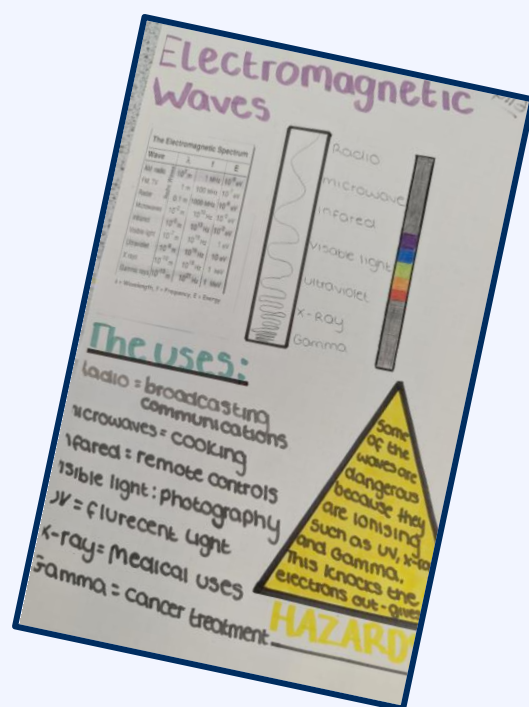 Electromagnetic
Waves
The Electromagnetic Spectrum
Wave λ f E
Radio
microwave
infared
visible light
ultraviolet
x-Ray
Gamma
λ = Wavelength, f = Frequency, E = Energy
The uses:
Radio = broadcasting
communications
microwaves = cooking
infared = remote controls
visible light : photography
UV = flurecent light
X-ray = Medical uses
Gamma = cancer treatment
Some
of the
waves are
dangerous
because they
are ionising
such as UV, x-ra
and Gamma.
This knocks the
electrons out - give
HAZARD